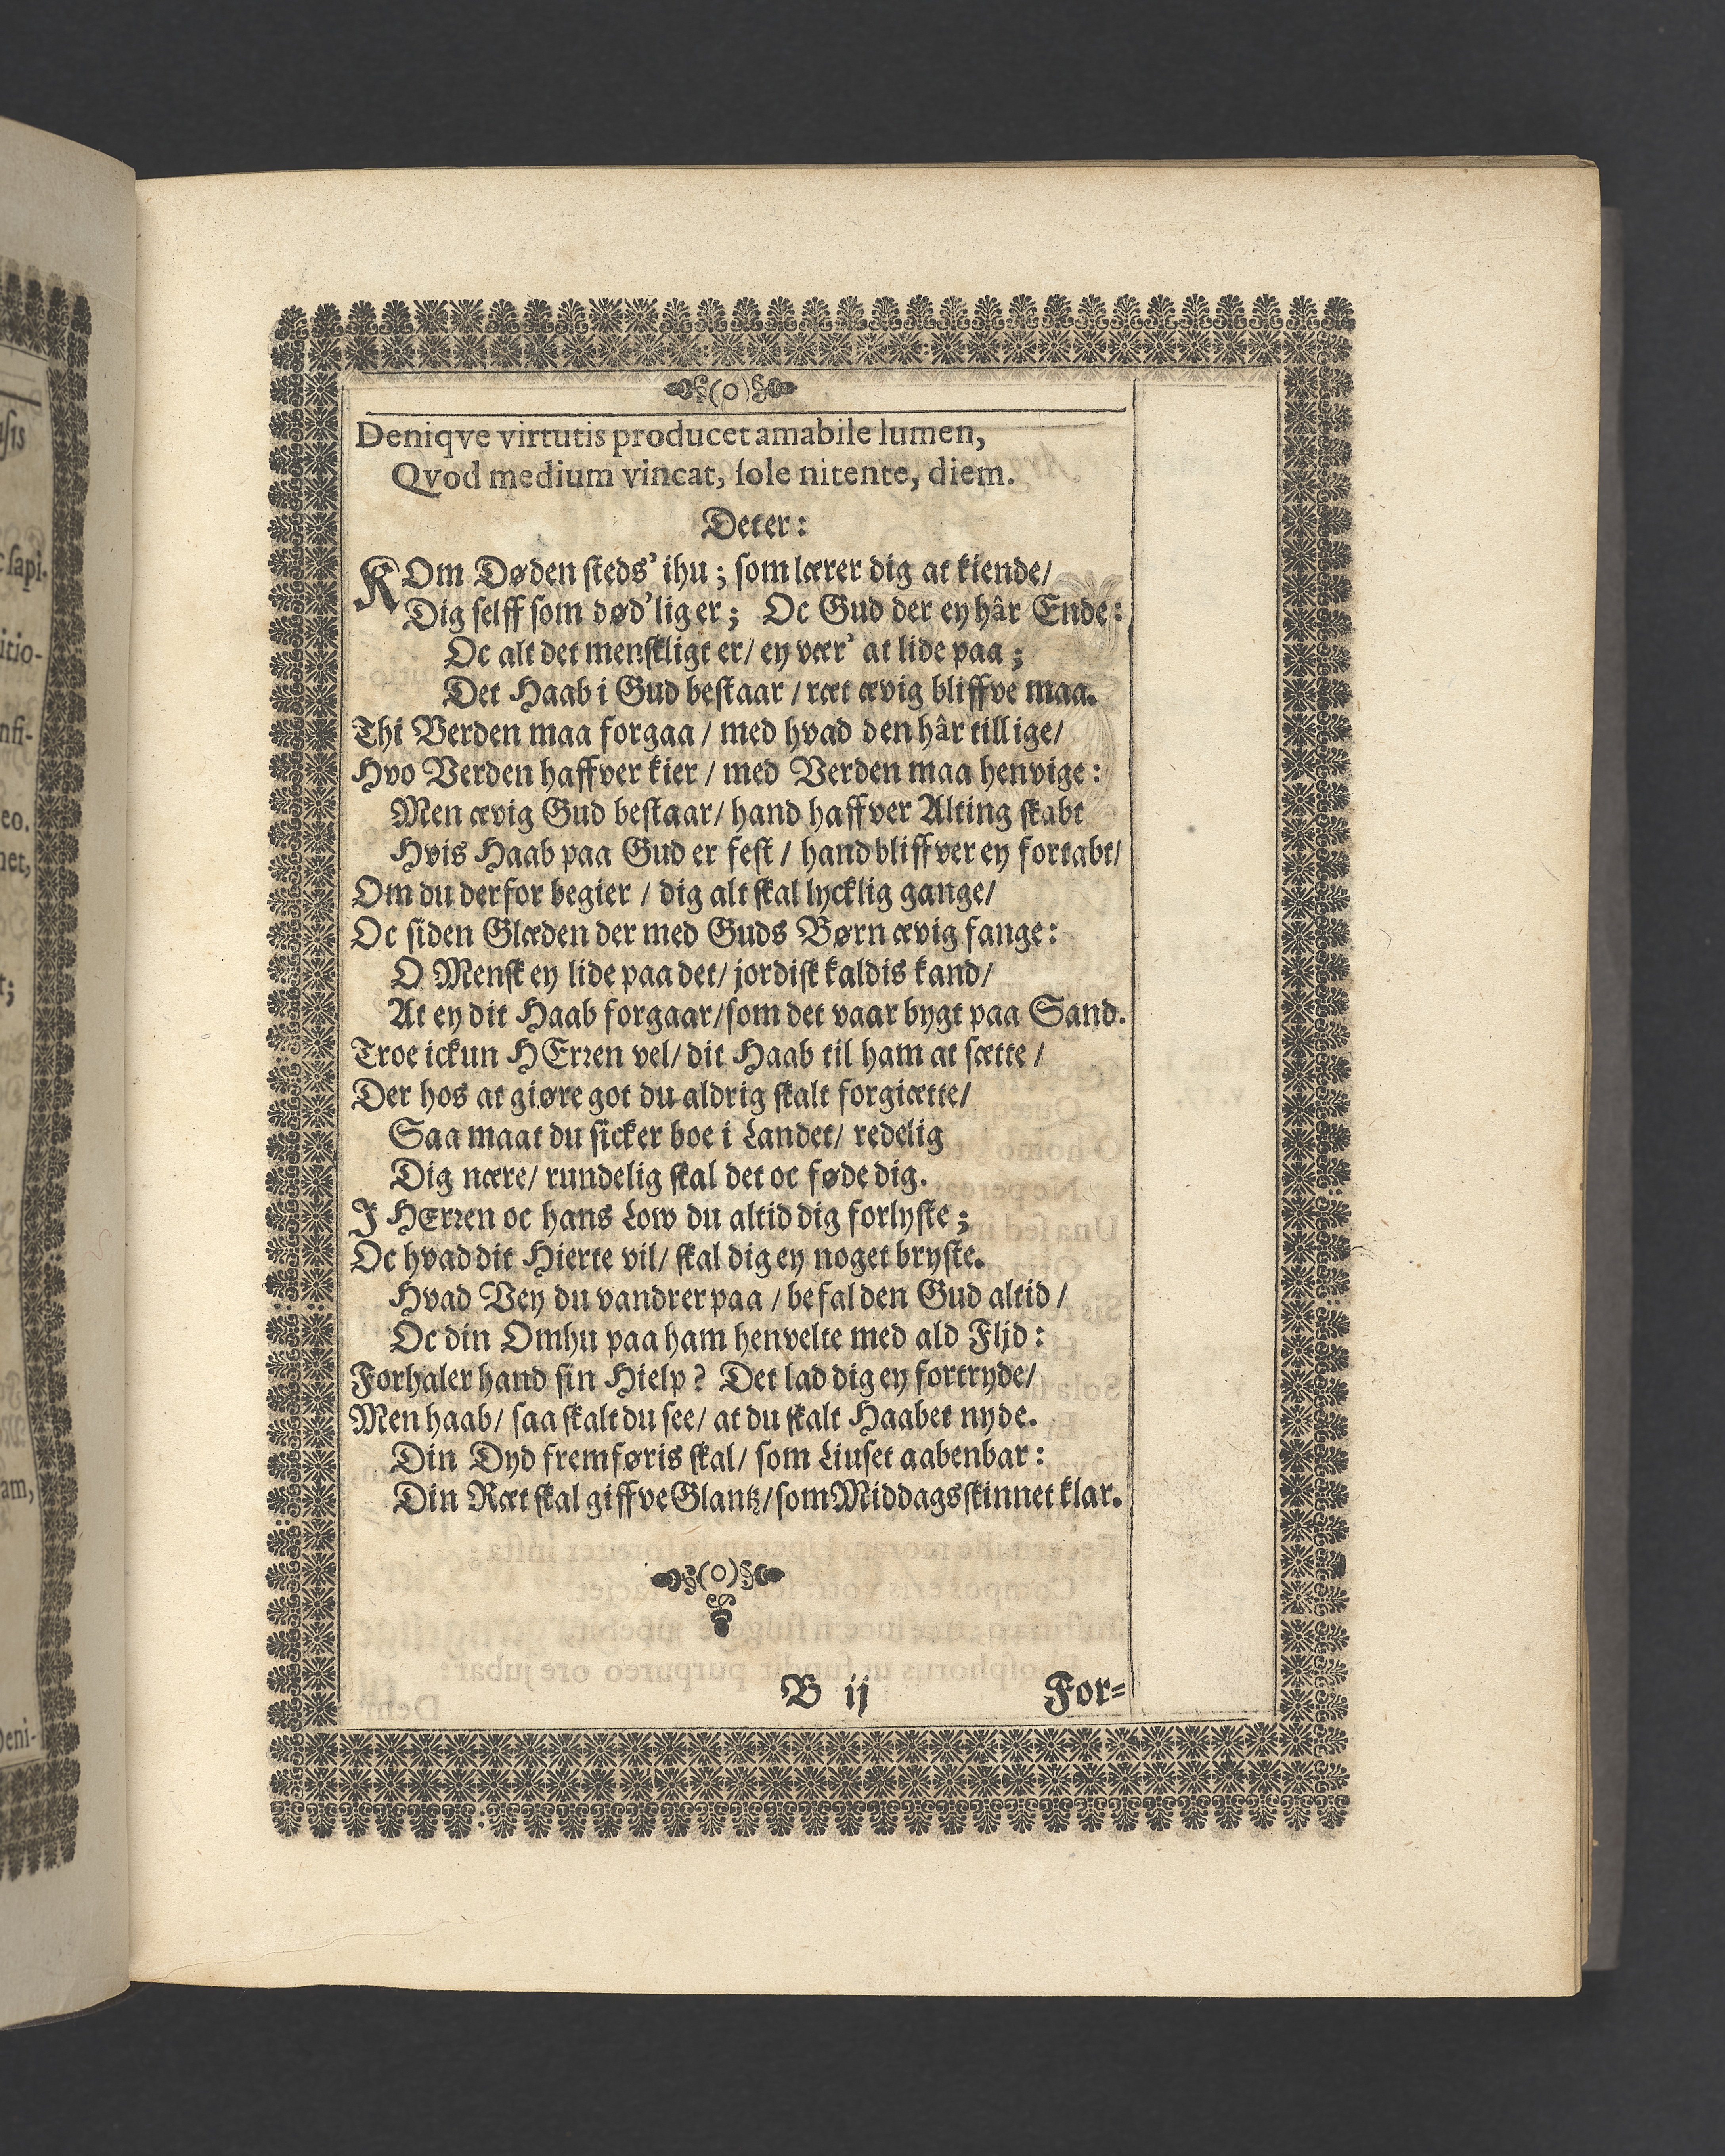 (o)
Deniqve virtutis producet amabile lumen,
Qvod medium vincat, sole nitente, diem.
Det er:
KOm Døden steds' ihu; som lærer dig at kiende/
Dig selff som død'lig er; Oc Gud der ey hâr Ende:
Oc alt det menskligt er/ ey vær' at lide paa;
Det Haab i Gud bestaar/ ræt ævig bliffve maa.
Thi Verden maa forgaa/ med hvad den hâr tillige/
Hvo Verden haffver kier/ med Verden maa henvige:
Men ævig Gud bestaar/ hand haffver Alting skabt
Hvis Haab paa Gud er fest/ hand bliffver ey fortabt/
Om du derfor begier/ dig alt skal lycklig gange/
Oc siden Glæden der med Guds Børn ævig fange:
O Mensk ey lide paa det/ jordisk kaldis kand/
At ey dit Haab forgaar/ som det vaar bygt paa Sand.
Troe ickun HErren vel/ dit Haab til ham at sætte/
Der hos at giøre got du aldrig skalt forgiætte/
Saa maat du sicker boe i Landet/ redelig
Dig nære/ rundelig skal det oc føde dig.
J HErren oc hans Low du altid dig forlyste;
Oc hvad dit Hierte vil/ skal dig ey noget bryste.
Hvad Vey du vandrer paa/ befal den Gud altid/
Oc din Omhu paa ham henvelte med ald Flid:
Forhaler hand sin Hielp? Det lad dig ey fortryde/
Men haab/ saa skalt du see/ at du skalt Haabet nyde.
Din Dyd fremføris skal/ som Liuset aabenbar:
Din Ræt skal giffve Glantz/ som Middagsskinnet klar.
(o)
B ij For=